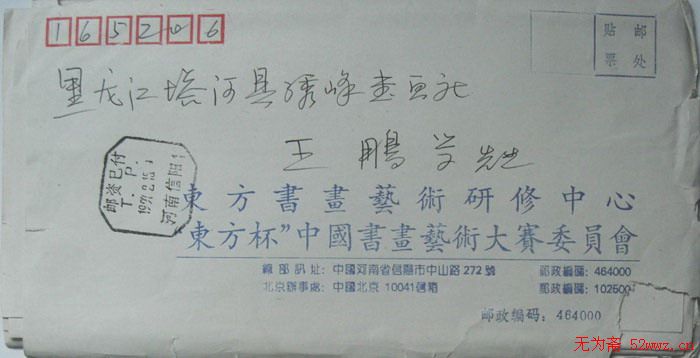 165206
贴 邮
票 处
黑龙江塔河县秀峰书画社
王鹏学先生
邮资已付
T. P.
河南信阳
東方書畫藝術研修中心
“東方杯”中國書畫藝術大賽委員會
總部訊址: 中國河南省信陽市中山路 272 號 郵政編碼: 464000
北京辦事處: 中國北京 10041信箱 郵政編碼: 102500
邮政编码: 464000
无为斋 52wwz.cn